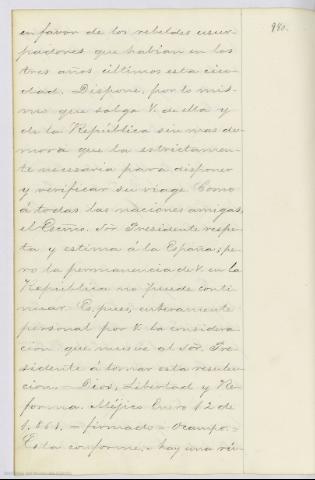 980.
en favor de los rebeldes usur-
padores que habian en los
tres años últimos esta ciu-
dad. Dispone, por lo mis-
mo que salga V. de ella y
de la República sin mas de-
mora que la estrictamen-
te necesaria para disponer
y verificar su viage. Como
á todas las naciones amigas,
el Escmo. Sor. Presidente respe-
ta y estima á la España; pe-
ro la permanencia de V. en la
República no puede conti-
nuar. Es, pues, enteramente
personal por V. la considera-
cion que mueve al Sor. Pre-
sidente á tomar esta resolu-
cion. = Dios, Libertad y Re-
forma. Méjico Enero 12 de
1.861. = firmado = Ocampo. =
Está conforme. = hay una rú-